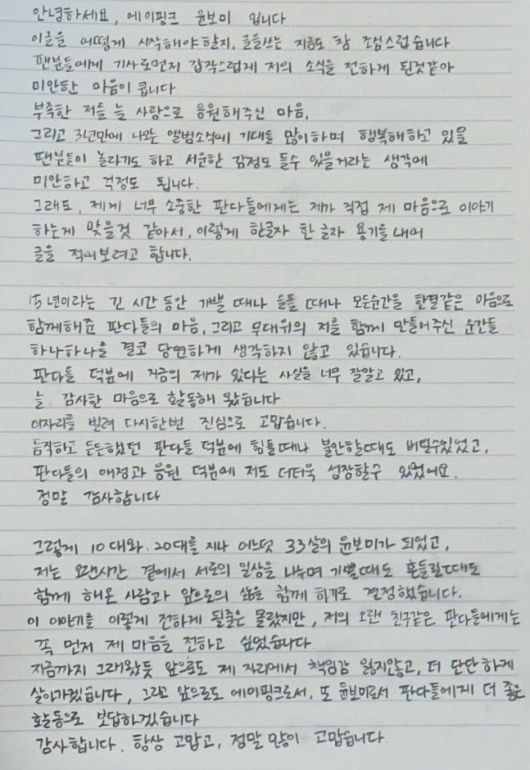 안녕하세요, 에이핑크 윤보미 입니다
이글을 어떻게 시작해야할지, 글을쓰는 지금도 참 조심스럽습니다
팬분들에게 기사로먼저 갑작스럽게 저의 소식을 전하게 된것같아
미안한 마음이 큽니다
부족한 저를 늘 사랑으로 응원해주신 마음,
그리고 3년만에 나오는 앨범소식에 기대를 많이하며 행복해하고 있을
팬분들이 놀라기도 하고 서운한 감정도 들수 있을거라는 생각에
미안하고 걱정도 됩니다.
그래도, 제게 너무 소중한 판다들에게는 제가 직접 제 마음으로 이야기
하는게 맞을것 같아서, 이렇게 한글자 한 글자 용기를 내어
글을 적어보려고 합니다.
15년이라는 긴 시간동안 기쁠 때나 슬플 때나 모든순간을 한결같은 마음으로
함께해준 판다들의 마음, 그리고 무대위의 저를 함께 만들어주신 순간들
하나하나를 결코 당연하게 생각하지 않고 있습니다.
판다들 덕분에 지금의 제가 있다는 사실을 너무 잘알고 있고,
늘 감사한 마음으로 활동해 왔습니다
이자리를 빌려 다시한번 진심으로 고맙습니다.
듬직하고 든든했던 판다들 덕분에 힘들때나 불안할때도 버틸수있었고,
판다들의 애정과 응원 덕분에 저도 더더욱 성장할수 있었어요.
정말 감사합니다
그렇게 10대와 20대를 지나 어느덧 33살의 윤보미가 되었고,
저는 오랜시간 곁에서 서로의 일상을 나누며 기쁠때도 흔들릴때도
함께 해온 사람과 앞으로의 삶을 함께 하기로 결정했습니다.
이 이야기를 이렇게 전하게 될줄은 몰랐지만, 저의 오랜 친구같은 판다들에게는
꼭 먼저 제 마음을 전하고 싶었습니다
지금까지 그래왔듯 앞으로도 제 자리에서 책임감 잃지않고, 더 단단하게
살아가겠습니다, 그리고 앞으로도 에이핑크로서, 또 윤보미로서 판다들에게 더 좋은
활동으로 보답하겠습니다
감사합니다. 항상 고맙고, 정말 많이 고맙습니다.